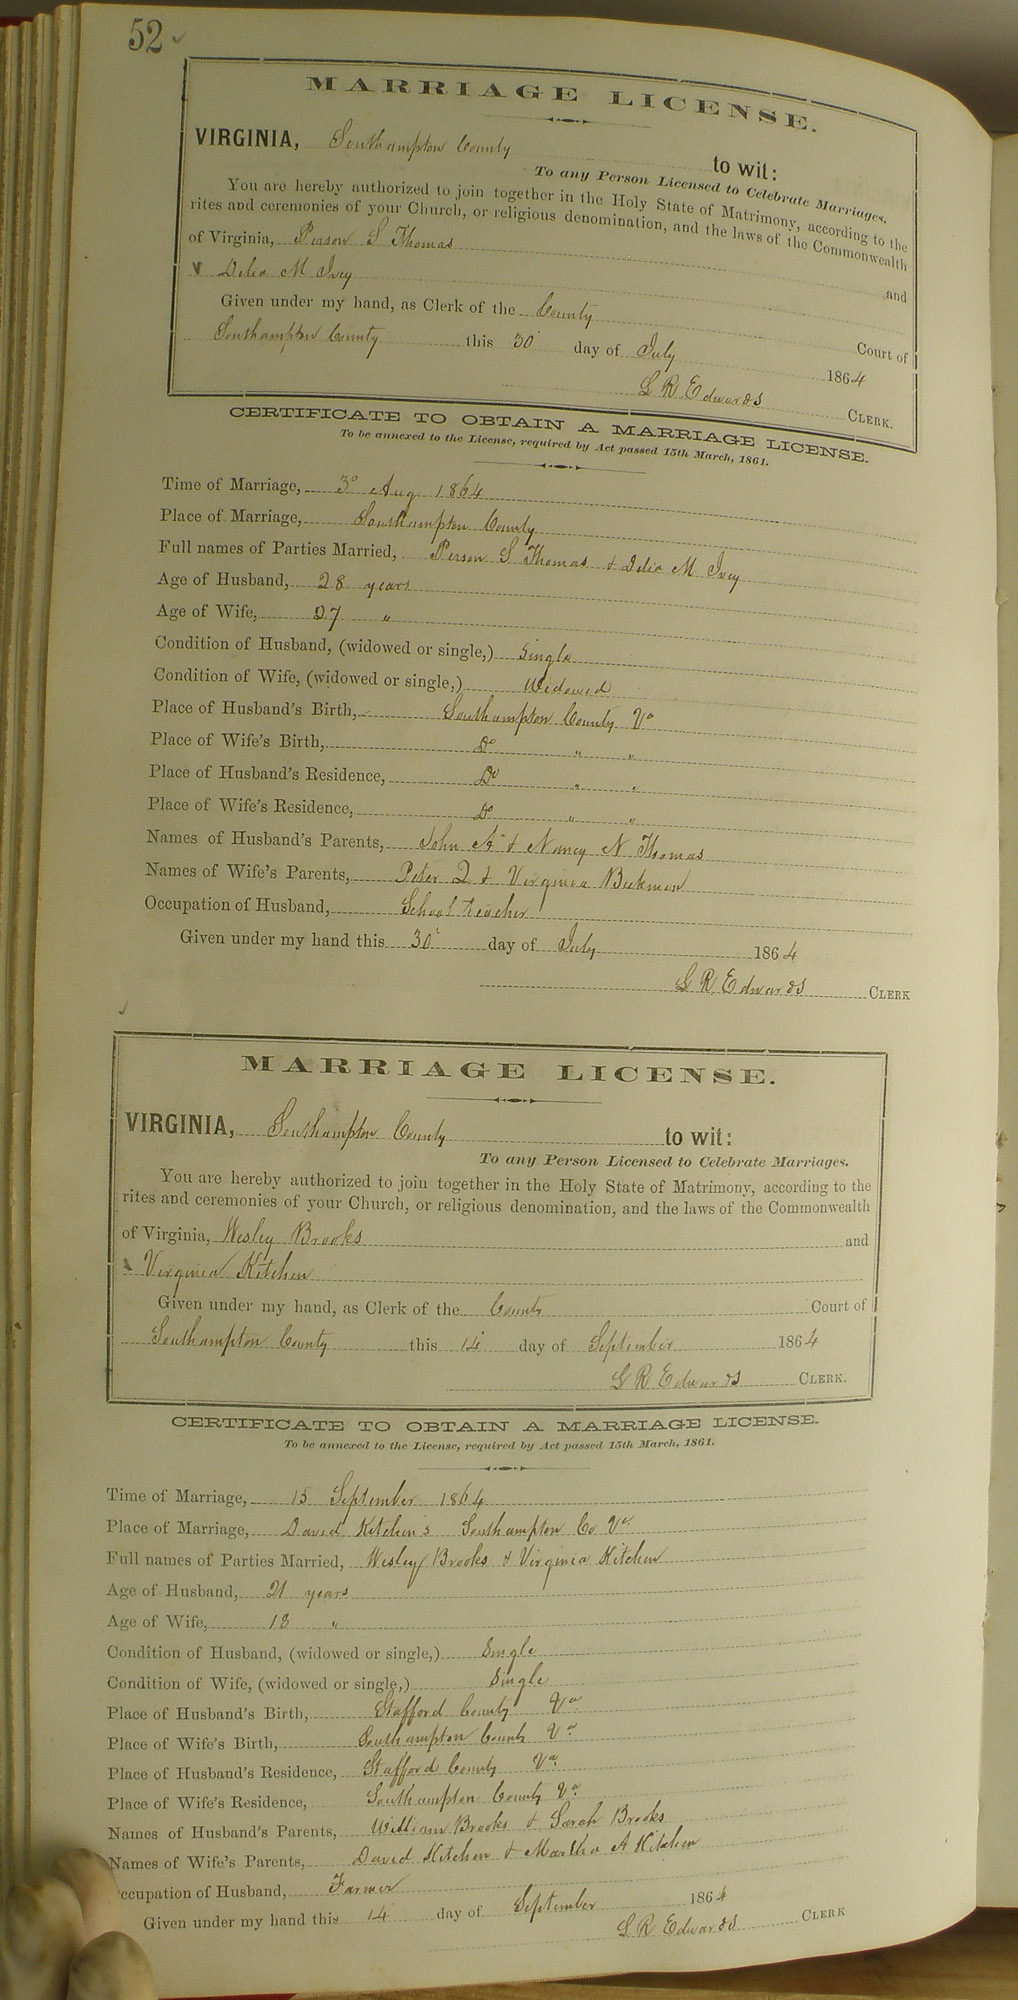 52
MARRIAGE LICENSE.
VIRGINIA, Southampton County to wit:
To any Person Licensed to Celebrate Marriages.
You are hereby authorized to join together in the Holy State of Matrimony, according to the
rites and ceremonies of your Church, or religious denomination, and the laws of the Commonwealth
of Virginia, Person S Thomas and
Delia M Ivey
Given under my hand, as Clerk of the County Court of
Southampton County this 30 day of July 1864
L R Edwards CLERK.
CERTIFICATE TO OBTAIN A MARRIAGE LICENSE.
To be annexed to the License, required by Act passed 15th March, 1861.
Time of Marriage, 3d Aug 1864
Place of Marriage, Southampton County
Full names of Parties Married, Person S Thomas & Delia M Ivey
Age of Husband, 28 years
Age of Wife, 27 "
Condition of Husband, (widowed or single,) Single
Condition of Wife, (widowed or single,) Widowed
Place of Husband's Birth, Southampton County Va
Place of Wife's Birth, Do " "
Place of Husband's Residence, Do " "
Place of Wife's Residence, Do " "
Names of Husband's Parents, John & Nancy N Thomas
Names of Wife's Parents, Peter & Virginia
Occupation of Husband, School teacher
Given under my hand this 30 day of July 1864
L R Edwards CLERK
MARRIAGE LICENSE.
VIRGINIA, Southampton County to wit:
To any Person Licensed to Celebrate Marriages.
You are hereby authorized to join together in the Holy State of Matrimony, according to the
rites and ceremonies of your Church, or religious denomination, and the laws of the Commonwealth
of Virginia, Wesley Brooks and
Virginia Kitchen
Given under my hand, as Clerk of the County Court of
Southampton County this 14 day of September 1864
L R Edwards CLERK.
CERTIFICATE TO OBTAIN A MARRIAGE LICENSE.
To be annexed to the License, required by Act passed 15th March, 1861.
Time of Marriage, 15 September 1864
Place of Marriage, David Kitchen's Southampton Co Va
Full names of Parties Married, Wesley Brooks & Virginia Kitchen
Age of Husband, 21 years
Age of Wife, 18 "
Condition of Husband, (widowed or single,) Single
Condition of Wife, (widowed or single,) Single
Place of Husband's Birth, Stafford County Va
Place of Wife's Birth, Southampton County Va
Place of Husband's Residence, Stafford County Va
Place of Wife's Residence, Southampton County Va
Names of Husband's Parents, William Brooks & Sarah Brooks
Names of Wife's Parents, David Kitchen & Martha A Kitchen
ccupation of Husband, Farmer
Given under my hand this 14 day of September 1864
L R Edwards CLERK